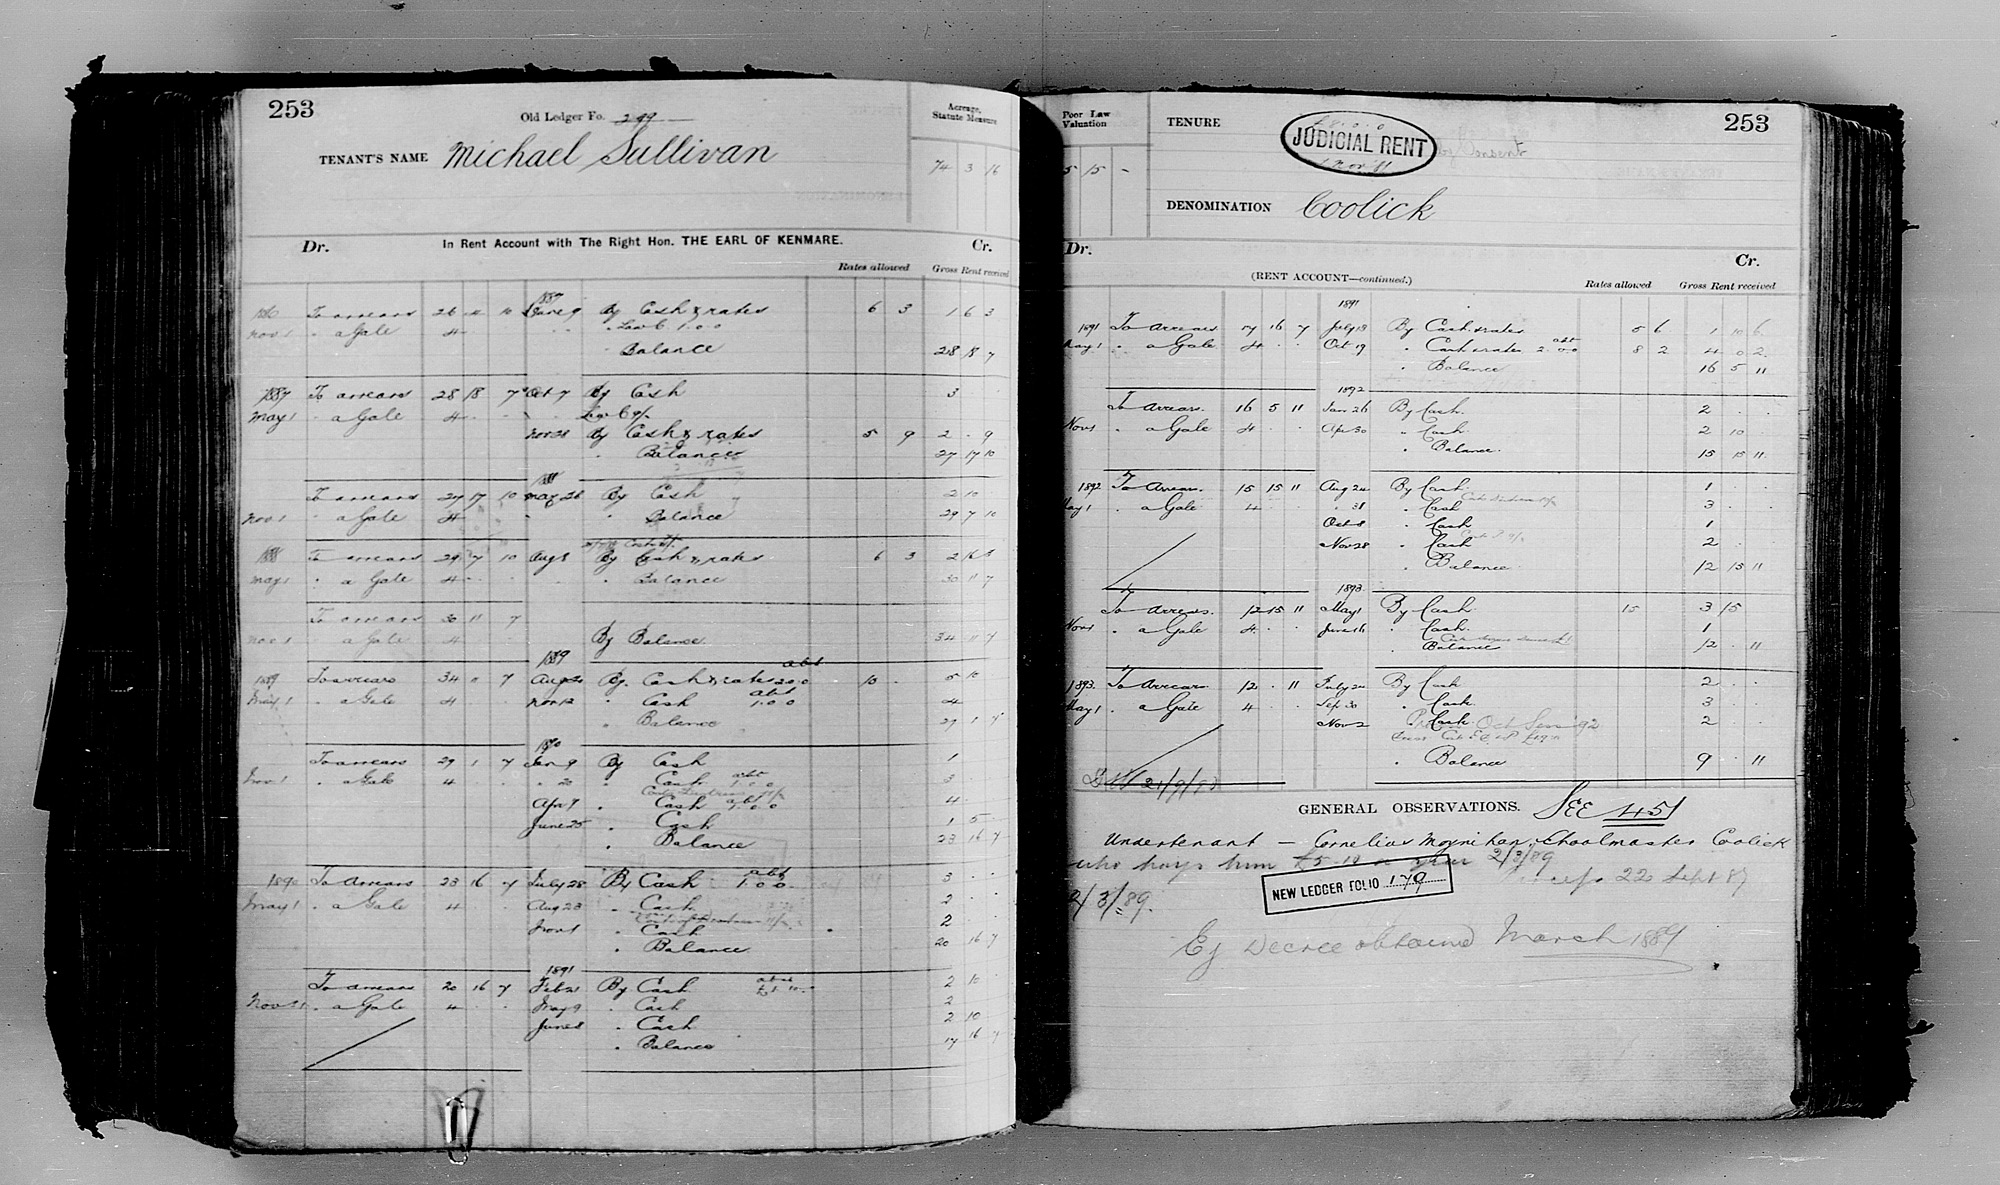 253
Old Ledger Fo. 299
TENANT'S NAME Michael Sullivan
Acreage, Statute Measure
74 3 16
Dr. In Rent Account with The Right Hon. THE EARL OF KENMARE. Cr.
Rates allowed Gross Rent received
1887
To arrears 26 10 June 9 By Cash & rates 6 3 1 6 3
Nov 1 " a Gale 4 1.0.0
Balance 28 18 7
1887 To arrears 28 18 7 Oct 7 By Cash 3
May 1 " a Gale 4
Nov 28 By Cash & rates 5 9 2 . 9
" Balance 27 17 10
1888
To arrears 27 17 10 May 26 By Cash 2 10
Nov 1 " a Gale 4 " Balance 29 7 10
1888 To arrears 29 7 10 Aug 8 By Cash & rates 6 3 2 16 3
May 1 " a Gale 4 " Balance 30 11 7
To arrears 30 11 7
Nov 1 a Gale 4 By Balance 34 11 7
1889
1889 To arrears 34 7 Aug 20 By Cash & rates abt 2 0 0 10 . 5 10
May 1 " a Gale 4 Nov 12 " Cash abt 1.0.0 4
" Balance 29 1 7
1890
To arrears 29 1 7 Jan 9 By Cash 1
Nov 1 " a Gale 4 " 20 " Cash abt 1 0 0 3
Apr 7 " Cash abt 1.0.0 4
June 25 " Cash 1 5
" Balance 23 16 7
1890 To Arrears 23 16 7 July 28 By Cash abt 1.0.0 3
May 1 " a Gale 4 Aug 23 " Cash 2
Nov 1 " Cash 2
" Balance 20 16 7
1891
To arrears 20 16 7 Feb 21 By Cash abt £1.10. 2 10
Nov 1 " a Gale 4 May 9 " Cash 2
June 8 " Cash 2 10
" Balance 17 16 7
Poor Law Valuation
5 15 -
TENURE
£8.0.0
JUDICIAL RENT
1 Nov 81
Consent
253
DENOMINATION Coolick
Dr. Cr.
(RENT ACCOUNT—continued.)
Rates allowed Gross Rent received
1891
1891 To Arrears 17 16 7 July 13 By Cash & rates 5 6 1 10 6
May 1 " a Gale 4 Oct 19 " Cash & rates abt 2.0.0 8 2 4 0 2
" Balance 16 5 11
1892
To Arrears 16 5 11 Jan 26 By Cash 2
Nov 1 " a Gale 4 Apr 30 " Cash 2 10
" Balance 15 15 11
1892 To Arrears 15 15 11 Aug 24 By Cash 1
May 1 " a Gale 4 " 31 " Cash 3
Oct 8 " Cash 1
Nov 28 " Cash 2
" Balance 12 15 11
1893
To Arrears 12 15 11 May 1 By Cash 15 3 15
Nov 1 " a Gale 4 June 16 " Cash 1
" Balance 12 . 11
1893 To Arrears 12 . 11 July 24 By Cash 2
May 1 " a Gale 4 Sep 30 " Cash 3
Nov 2 " Cash 2
" Balance 9 . 11
GENERAL OBSERVATIONS. SEE 451
Undertenant — Cornelius Moynihan Schoolmaster Coolick
who pays him £5.10 a year 2/3/89
22 Sept 87
NEW LEDGER FOLIO 179
2/3/89.
Ej Decree obtained March 1889